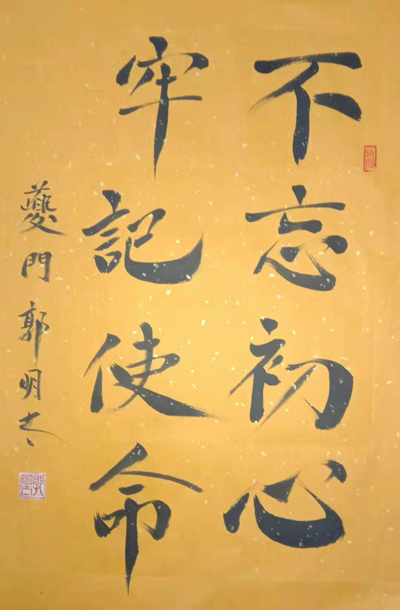 不忘初心
牢記使命
夔門郭明